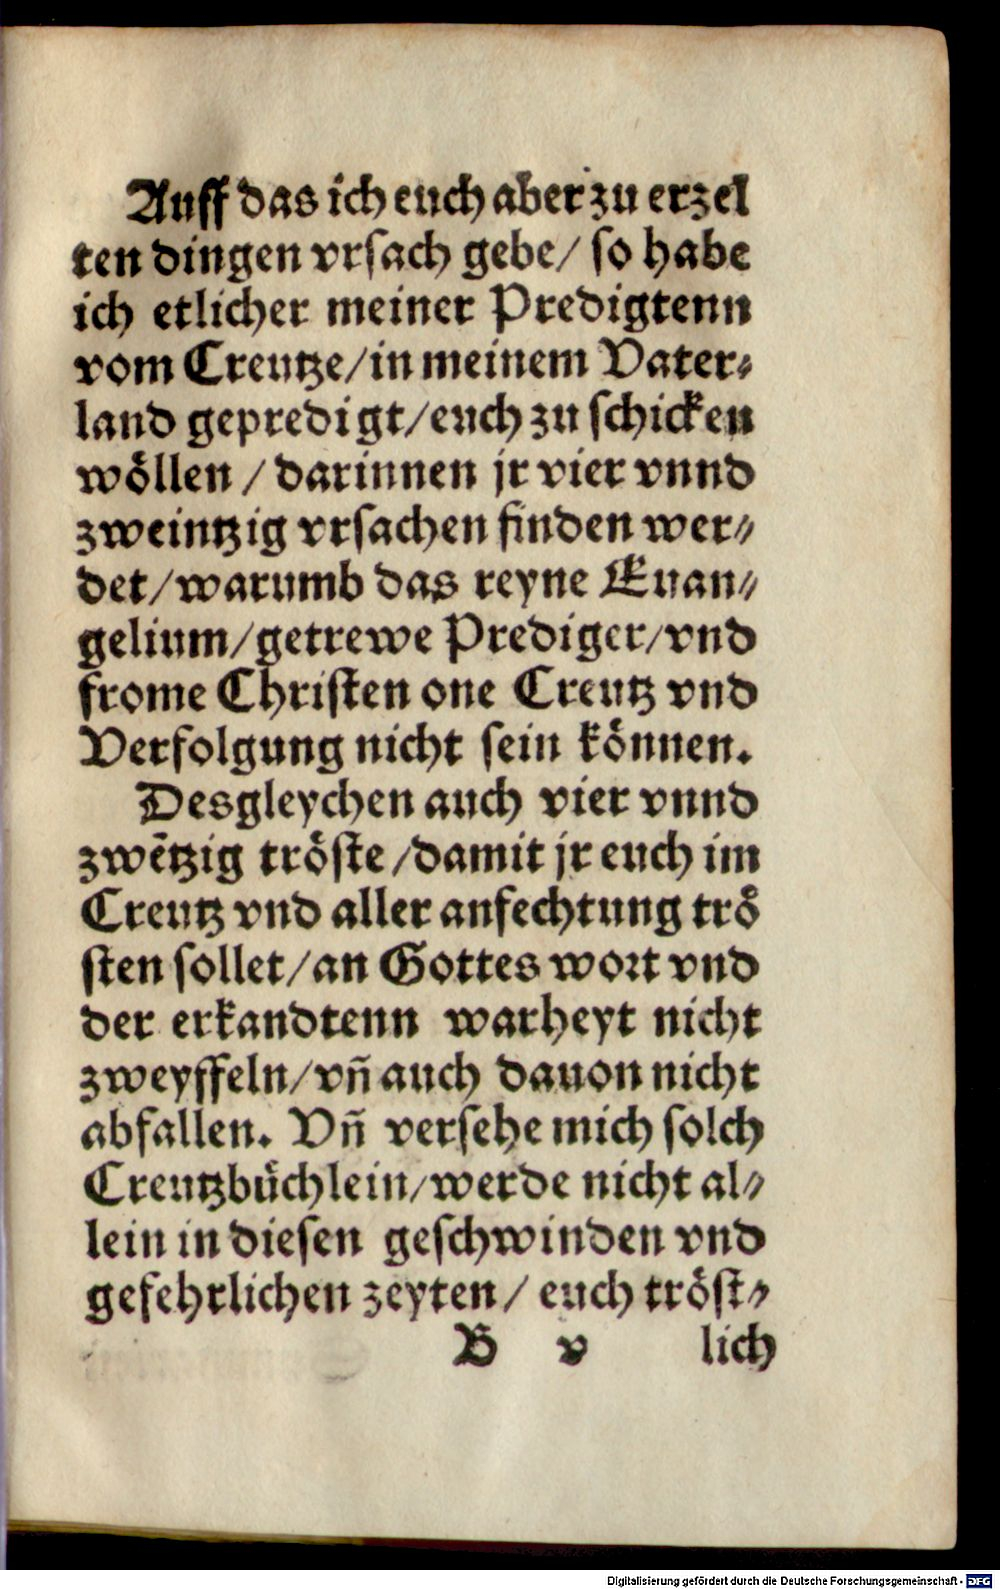 Auff das ich euch aber zu erzel
ten dingen vrsach gebe/ so habe
ich etlicher meiner Predigtenn
vom Creutze/in meinem Vater⸗
land gepredigt/euch zu schicken
woͤllen / darinnen jr vier vnnd
zweintzig vrsachen finden wer⸗
det/warumb das reyne Euan⸗
gelium/getrewe Prediger/vnd
frome Christen one Creutz vnd
Verfolgung nicht sein koͤnnen.
Desgleychen auch vier vnnd
zwẽtzig troͤste /damit jr euch im
Creutz vnd aller anfechtung troͤ
sten sollet/an Gottes wort vnd
der erkandtenn warheyt nicht
zweyffeln/vñ auch dauon nicht
abfallen. Vñ versehe mich solch
Creutzbuͤchlein/werde nicht al⸗
lein in diesen geschwinden vnd
gefehrlichen zeyten/ euch troͤst⸗
B v lich
Digitalisierung gefördert durch die Deutsche Forschungsgemeinschaft - DFG